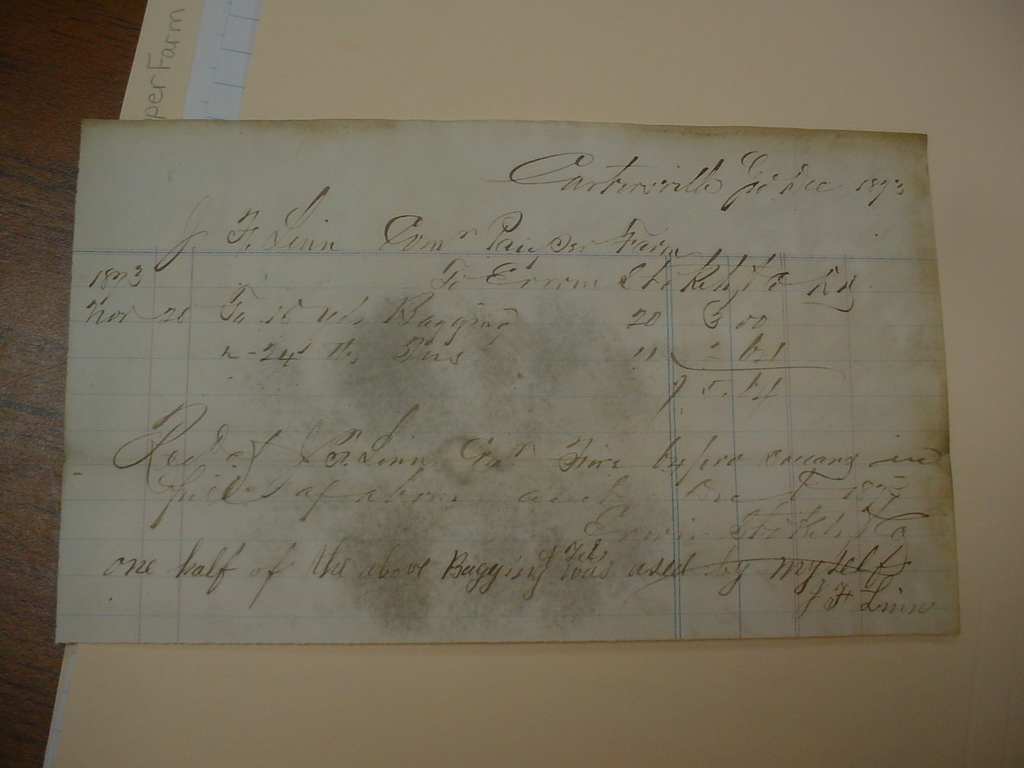 per Farm
Cartersville Ga Dec 1873
J. F. Linn Comr Pauper Farm
1873 To Erwin Stokely & Co Dr
Nov 20 To 15 yds Bagging 20 3 00
" 24 lbs Ties 11 2 64
$ 5.64
Recd of J. F. Linn Comr Five 64/100 in
full of above acct Dec 1873
Erwin Stokely & Co
one half of the above Bagging & Ties was used by myself
J F Linn